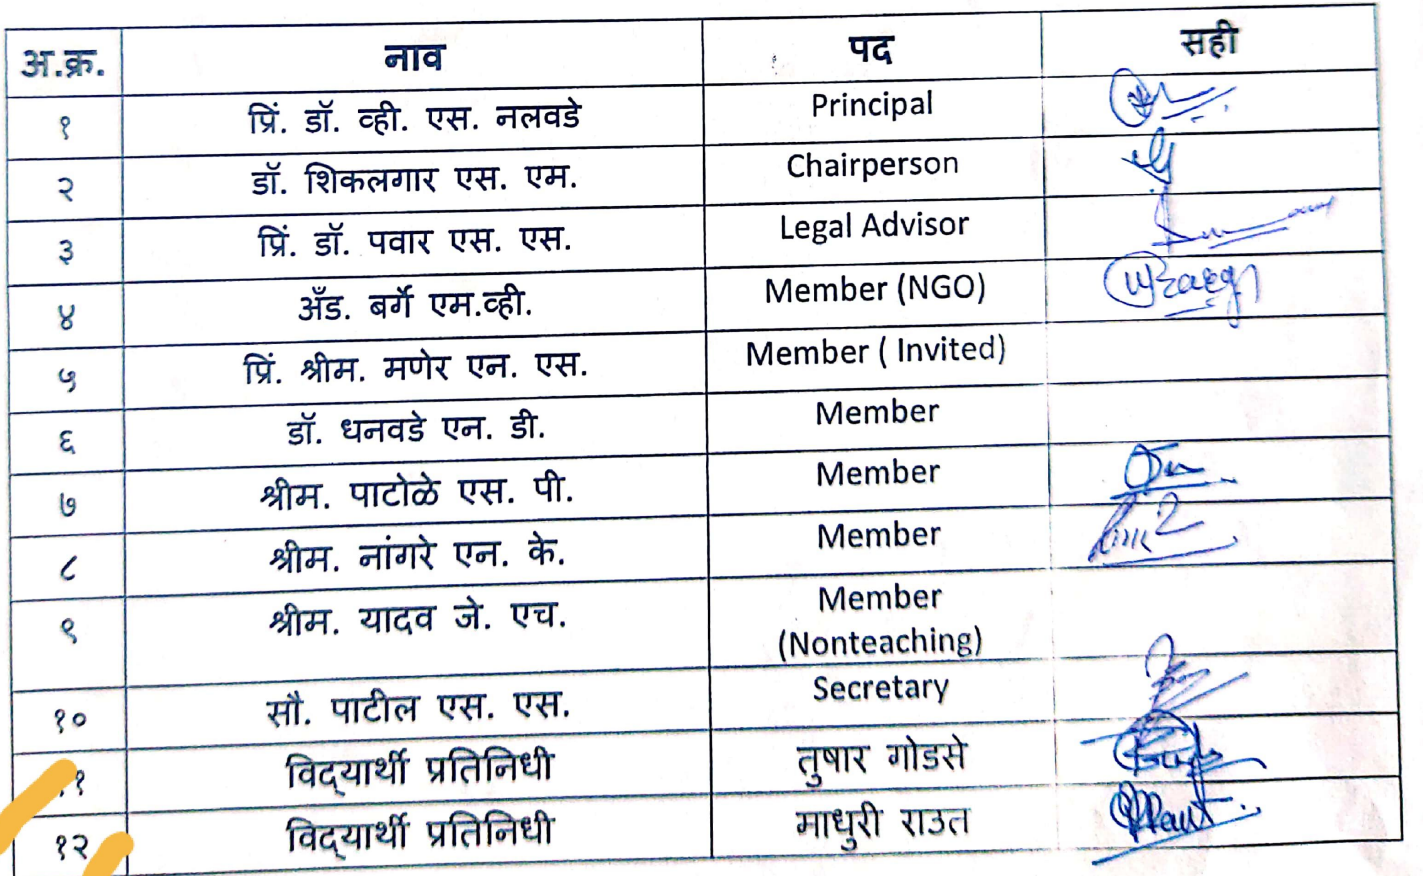 अ.क्र. नाव पद सही
१ प्रिं. डॉ. व्ही. एस. नलवडे Principal
२ डॉ. शिकलगार एस. एम. Chairperson
३ प्रिं. डॉ. पवार एस. एस. Legal Advisor
४ अँड. बर्गे एम.व्ही. Member (NGO)
५ प्रिं. श्रीम. मणेर एन. एस. Member ( Invited)
६ डॉ. धनवडे एन. डी. Member
७ श्रीम. पाटोळे एस. पी. Member
८ श्रीम. नांगरे एन. के. Member
९ श्रीम. यादव जे. एच. Member
(Nonteaching)
१० सौ. पाटील एस. एस. Secretary
११ विद्यार्थी प्रतिनिधी तुषार गोडसे
१२ विद्यार्थी प्रतिनिधी माधुरी राउत